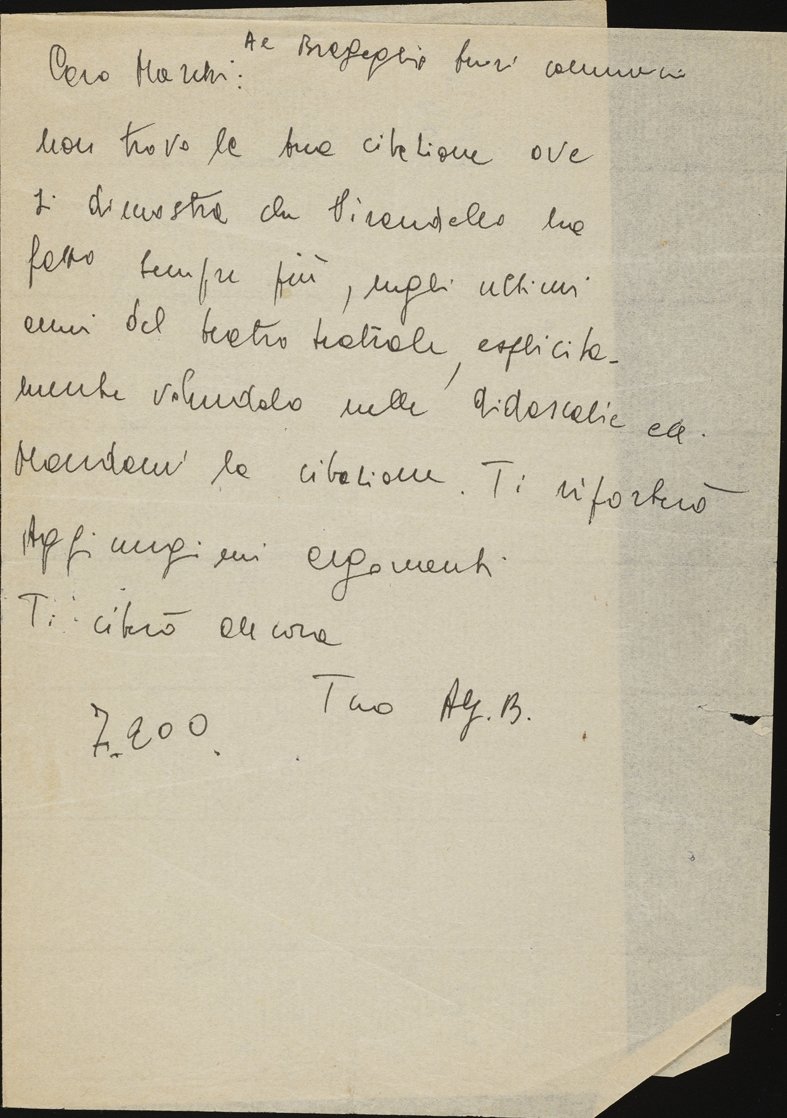 Ag Bragaglia
Caro Marchi:
non trovo la tua citazione ove
si dimostra che Pirandello ha
fatto sempre più, negli ultimi
anni del teatro teatrale, esplicita-
mente volendolo nelle didascalie ecc.
Mandami la citazione. Ti riporterò
Aggiungimi argomenti
Ti citerò ancora
Tuo AG. B.